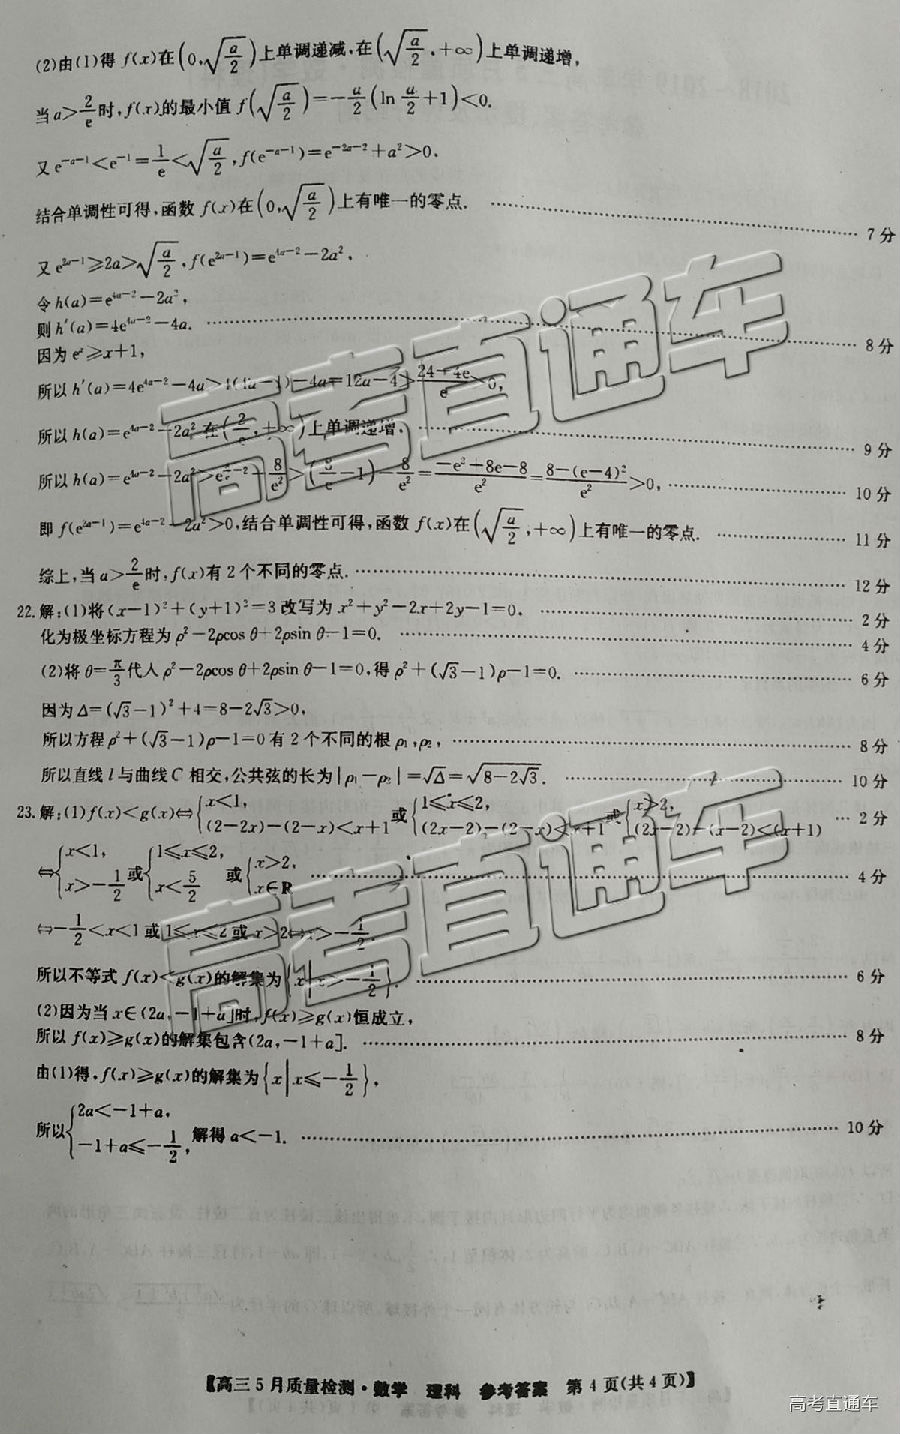 (2)由(1)得 f(x)在(0,√(a/2))上单调递减,在(√(a/2),+∞)上单调递增,
当a>2/e时,f(x)的最小值 f(√(a/2))=-a/2(ln a/2+1)<0.
又 e^(-a-1)<e^(-1)=1/e<√(a/2),f(e^(-a-1))=e^(-2a-2)+a²>0.
结合单调性可得,函数 f(x)在(0,√(a/2))上有唯一的零点. …… 7分
又 e^(2a-1)≥2a>√(a/2),f(e^(2a-1))=e^(4a-2)-2a².
令 h(a)=e^(4a-2)-2a²,
则 h′(a)=4e^(4a-2)-4a. …… 8分
因为 e^x≥x+1,
所以 h′(a)=4e^(4a-2)-4a>4(4a-1)-4a=12a-4>(24-4e)/e>0,
所以 h(a)=e^(4a-2)-2a²在(2/e,+∞)上单调递增, …… 9分
所以 h(a)=e^(4a-2)-2a²>e^(8/e-2)-8/e²>(8/e-1)-8/e²=(-e²+8e-8)/e²=(8-(e-4)²)/e²>0, …… 10分
即 f(e^(2a-1))=e^(4a-2)-2a²>0,结合单调性可得,函数 f(x)在(√(a/2),+∞)上有唯一的零点. …… 11分
综上,当a>2/e时,f(x)有2个不同的零点. …… 12分
22.解:(1)将(x-1)²+(y+1)²=3改写为 x²+y²-2x+2y-1=0. …… 2分
化为极坐标方程为 ρ²-2ρcos θ+2ρsin θ-1=0. …… 4分
(2)将 θ=π/3代人 ρ²-2ρcos θ+2ρsin θ-1=0,得 ρ²+(√3-1)ρ-1=0. …… 6分
因为 Δ=(√3-1)²+4=8-2√3>0,
所以方程 ρ²+(√3-1)ρ-1=0有2个不同的根 ρ₁,ρ₂, …… 8分
所以直线 l 与曲线 C 相交,公共弦的长为|ρ₁-ρ₂|=√Δ=√(8-2√3). …… 10分
23.解:(1)f(x)<g(x)⇔{x<1, (2-2x)-(2-x)<x+1 或{1≤x≤2, (2x-2)-(2-x)<x+1 或{x>2, (2x-2)-(x-2)<(x+1) … 2分
⇔{x<1, x>-1/2 或{1≤x≤2, x<5/2 或{x>2, x∈R …… 4分
⇔-1/2<x<1或1≤x≤2或x>2⇔x>-1/2.
所以不等式 f(x)<g(x)的解集为{x|x>-1/2}. …… 6分
(2)因为当 x∈(2a,-1+a]时,f(x)≥g(x)恒成立,
所以 f(x)≥g(x)的解集包含(2a,-1+a]. …… 8分
由(1)得,f(x)≥g(x)的解集为{x|x≤-1/2},
所以{2a<-1+a, -1+a≤-1/2, 解得 a<-1. …… 10分
【高三5月质量检测·数学 理科 参考答案 第4页(共4页)】
高考直通车
高考直通车
高考直通车